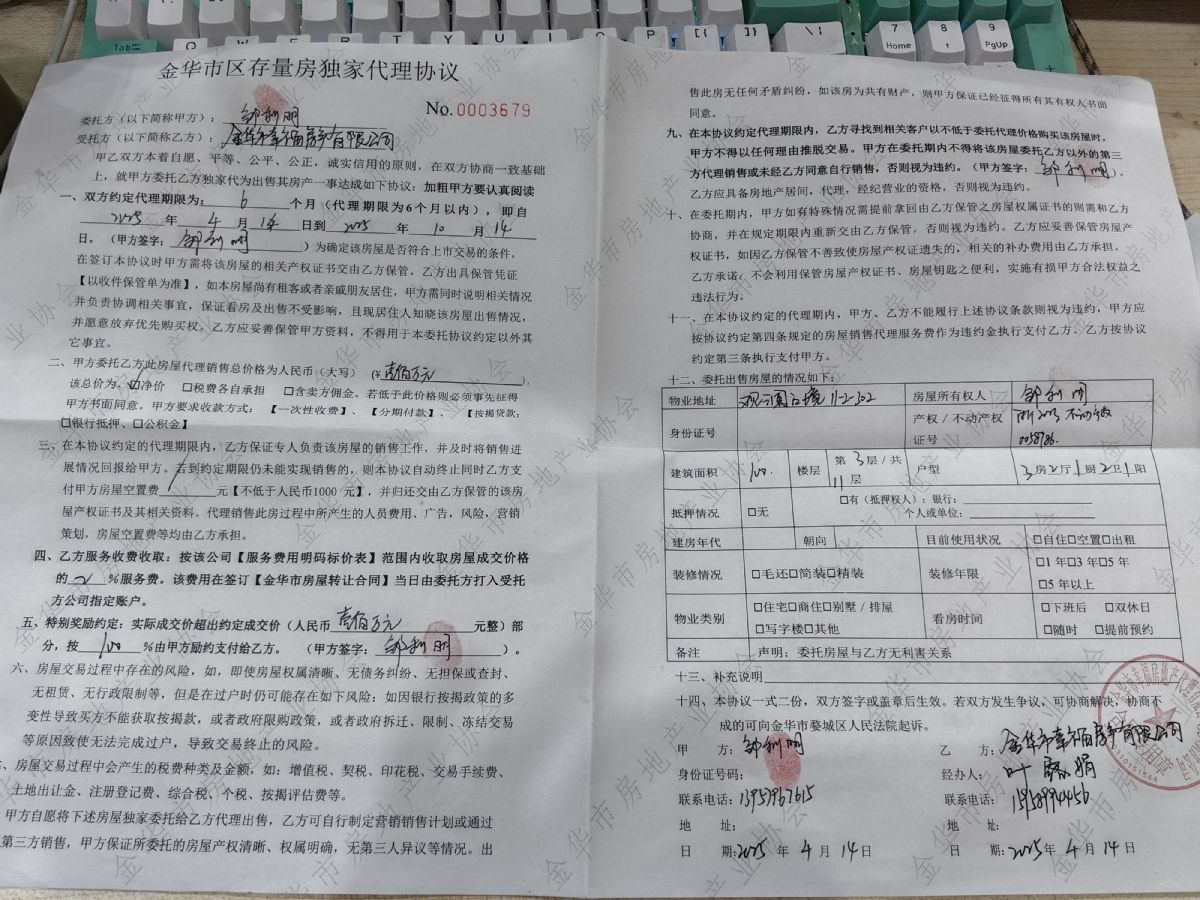 金华市区存量房独家代理协议
No.0003679
委托方（以下简称甲方）：邹利明
受托方（以下简称乙方）：金华市幸福房产有限公司
甲乙双方本着自愿、平等、公平、公正，诚实信用的原则，在双方协商一致基础
上，就甲方委托乙方独家代为出售其房产一事达成如下协议：加粗甲方要认真阅读
一、双方约定代理期限为： 6 个月（代理期限为6个月以内），即自
2025 年 4 月 14 日到 2025 年 10 月 14
日。（甲方签字：邹利明）为确定该房屋是否符合上市交易的条件，
在签订本协议时甲方需将该房屋的相关产权证书交由乙方保管，乙方出具保管凭证
【以收件保管单为准】，如本房屋尚有租客或者亲戚朋友居住，甲方需同时说明相关情况
并负责协调相关事宜，保证看房及出售不受影响，且现居住人知晓该房屋出售情况，
并愿意放弃优先购买权。乙方应妥善保管甲方资料，不得用于本委托协议约定以外其
它事宜。
二、甲方委托乙方此房屋代理销售总价格为人民币（大写）（¥壹佰万元），
该总价为：☑净价 □税费各自承担 □含卖方佣金。若低于此价格则必须事先征得
甲方书面同意。甲方要求收款方式：【一次性收费】、【分期付款】、【按揭贷款：
□银行抵押、□公积金】
三、在本协议约定的代理期限内，乙方保证专人负责该房屋的销售工作，并及时将销售进
展情况回报给甲方。若到约定期限仍未能实现销售的，则本协议自动终止同时乙方支
付甲方房屋空置费 / 元【不低于人民币1000 元】，并归还交由乙方保管的该房
屋产权证书及其相关资料。代理销售此房过程中所产生的人员费用、广告，风险，营销
策划，房屋空置费等均由乙方承担。
四、乙方服务收费收取：按该公司【服务费用明码标价表】范围内收取房屋成交价格
的 %服务费。该费用在签订【金华市房屋转让合同】当日由委托方打入受托
方公司指定账户。
五、特别奖励约定：实际成交价超出约定成交价（人民币 壹佰万元 元整）部
分，按 100 %由甲方励约支付给乙方。（甲方签字：邹利明）。
六、房屋交易过程中存在的风险，如，即使房屋权属清晰、无债务纠纷、无担保或查封、
无租赁、无行政限制等，但是在过户时仍可能存在如下风险：如因银行按揭政策的多
变性导致买方不能获取按揭款，或者政府限购政策，或者政府拆迁、限制、冻结交易
等原因致使无法完成过户，导致交易终止的风险。
、房屋交易过程中会产生的税费种类及金额，如：增值税、契税、印花税、交易手续费、
土地出让金、注册登记费、综合税、个税、按揭评估费等。
甲方自愿将下述房屋独家委托给乙方代理出售，乙方可自行制定营销销售计划或通过
第三方销售，甲方保证所委托的房屋产权清晰、权属明确，无第三人异议等情况。出
售此房无任何矛盾纠纷，如该房为共有财产，则甲方保证已经征得所有其有权人书面
同意。
九、在本协议约定代理期限内，乙方寻找到相关客户以不低于委托代理价格购买该房屋时，
甲方不得以任何理由推脱交易。甲方在委托期内不得将该房屋委托乙方以外的第三
方代理销售或未经乙方同意自行销售，否则视为违约。（甲方签字：邹利明），
乙方应具备房地产居间，代理，经纪营业的资格，否则视为违约。
十、在委托期内，甲方如有特殊情况需提前拿回由乙方保管之房屋权属证书的则需和乙方
协商，并在规定期限内重新交由乙方保管，否则视为违约。乙方应妥善保管房屋产
权证书，如因乙方保管不善致使房屋产权证遗失的，相关的补办费用由乙方承担。
乙方承诺：不会利用保管房屋产权证书、房屋钥匙之便利，实施有损甲方合法权益之
违法行为。
十一、在本协议约定的代理期内，甲方、乙方不能履行上述协议条款则视为违约，甲方应
按协议约定第四条规定的房屋销售代理服务费作为违约金执行支付乙方。乙方按协议
约定第三条执行支付甲方。
十二、委托出售房屋的情况如下：
物业地址 观澜云境 11-2-302 房屋所有人 邹利明
身份证号 产权／不动产权证号 浙2023 不动产权 0058986.
建筑面积 100. 楼层 第 3 层／共 11 层 户型 3 房 2 厅 1 厨 2 卫 1 阳
抵押情况 □无 □有（抵押权人）：银行：
个人或单位：
建房年代 朝向 目前使用状况 □自住□空置□出租
装修情况 □毛还□简装□精装 装修年限 □1 年□3 年□5 年
□5 年以上
物业类别 □住宅□商住□别墅／排屋 看房时间 □下班后 □双休日
□写字楼□其他 □随时 □提前预约
备注 声明：委托房屋与乙方无利害关系
十三、补充说明
十四、本协议一式二份，双方签字或盖章后生效。若双方发生争议，可协商解决，协商不
成的可向金华市婺城区人民法院起诉。
甲 方：邹利明 乙 方：金华市幸福房产有限公司
身份证号码： 经办人：叶 娟
联系电话：13957967615 联系电话：15958994456
地 址： 地 址：
日 期：2025 年 4 月 14 日 日 期：2025 年 4 月 14 日